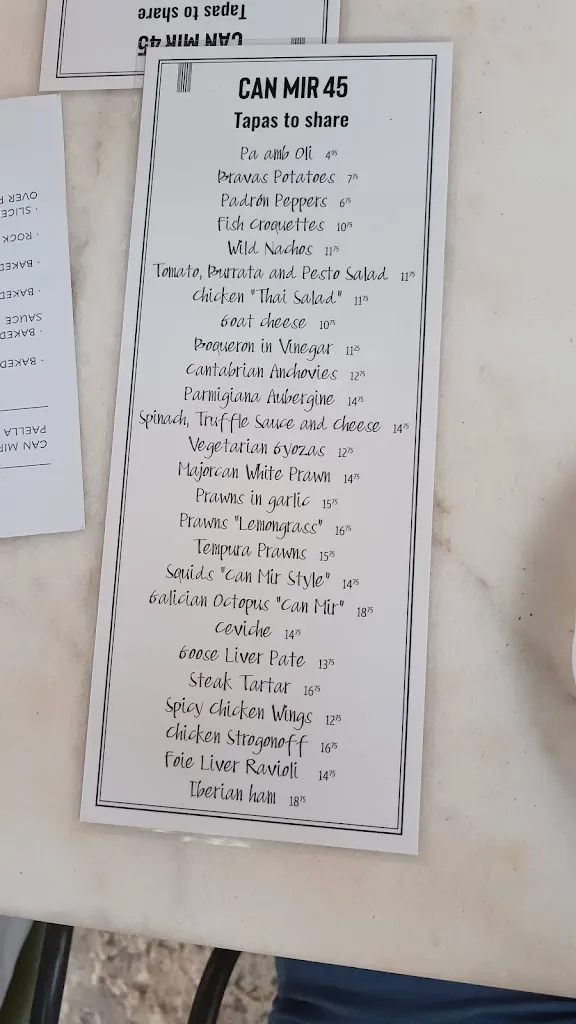 Tapas to share
CAN MIR 45
CAN MIR 45
Tapas to share
Pa amb Oli 4⁹⁵
Bravas Potatoes 7⁷⁵
Padrón Peppers 6⁷⁵
Fish Croquettes 10⁷⁵
Wild Nachos 11⁷⁵
Tomato, Burrata and Pesto Salad 11⁷⁵
Chicken "Thai Salad" 11⁷⁵
Goat cheese 10⁷⁵
Boqueron in Vinegar 11²⁵
Cantabrian Anchovies 12⁷⁵
Parmigiana Aubergine 14⁷⁵
Spinach, Truffle Sauce and Cheese 14⁷⁵
Vegetarian Gyozas 12⁷⁵
Majorcan White Prawn 14⁷⁵
Prawns in garlic 15⁷⁵
Prawns "Lemongrass" 16⁷⁵
Tempura Prawns 15⁷⁵
Squids "Can Mir Style" 14⁷⁵
Galician Octopus "Can Mir" 18⁷⁵
Ceviche 14⁷⁵
Goose Liver Pate 13⁷⁵
Steak Tartar 16⁷⁵
Spicy Chicken Wings 12⁷⁵
Chicken Strogonoff 16⁷⁵
Foie Liver Ravioli 14⁷⁵
Iberian ham 18⁷⁵
CAN MIR
PAELLA
· BAKED
· BAKED
SAUCE
· BAKED
· BAKED
· ROCK
· SLICE
OVER